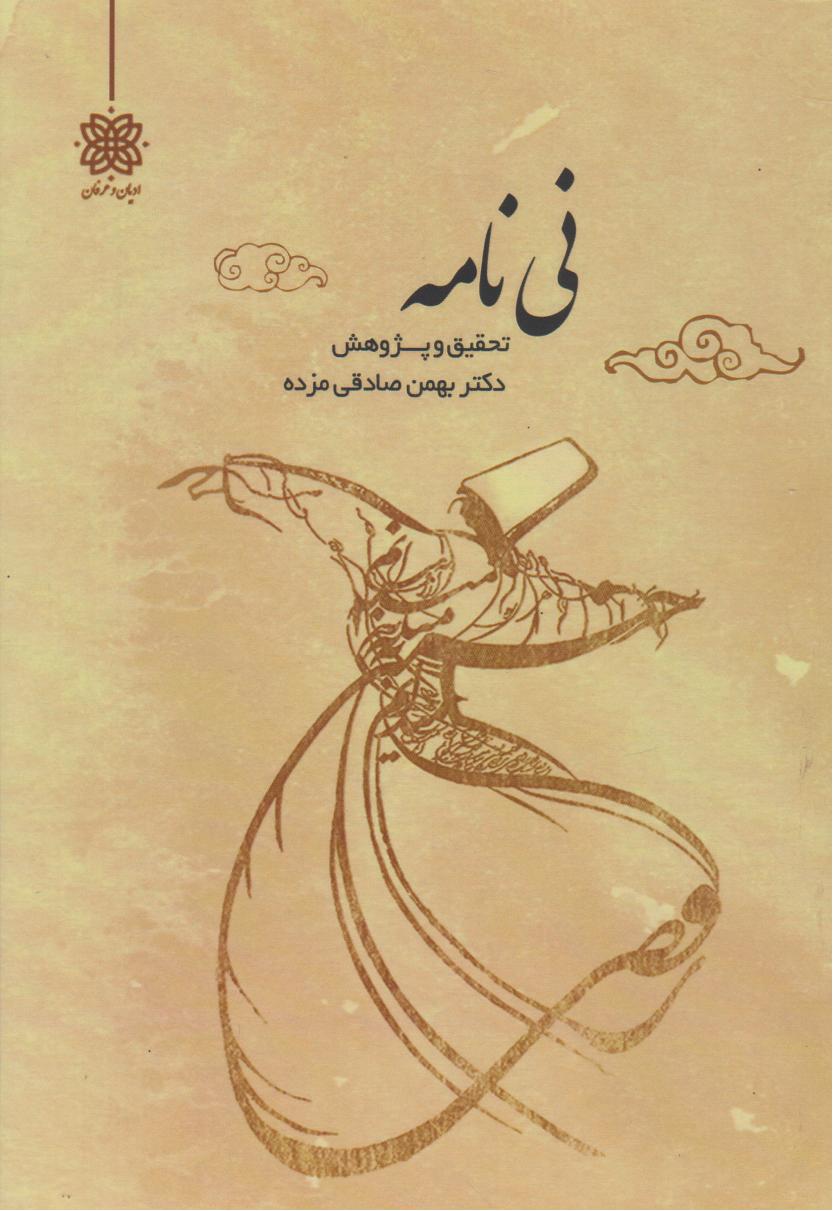 ادیان و عرفان
نی نامه
تحقیق و پژوهش
دکتر بهمن صادقی مزده